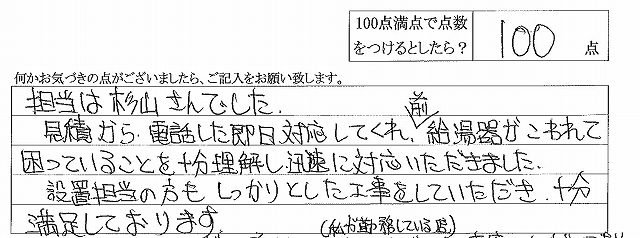 100点満点で点数
をつけるとしたら？ 100 点
何かお気づきの点がございましたら、ご記入をお願い致します。
担当は杉山さんでした.
見積から、電話した即日対応してくれ、前給湯器がこわれて
困っていることを十分理解し迅速に対応いただきました.
設置担当の方も しっかりとした工事をしていただき、十分
満足しております